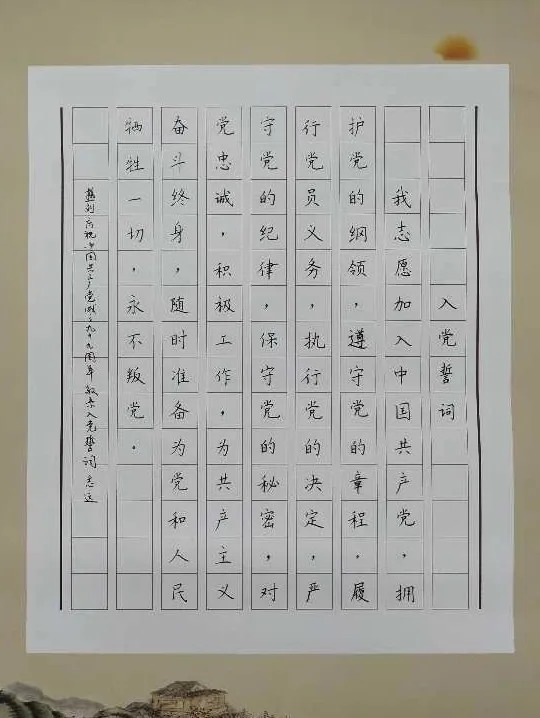 入党誓词
我志愿加入中国共产党，拥
护党的纲领，遵守党的章程，履
行党员义务，执行党的决定，严
守党的纪律，保守党的秘密，对
党忠诚，积极工作，为共产主义
奋斗终身，随时准备为党和人民
牺牲一切，永不叛党．
热烈庆祝中国共产党成立九十九周年 敬录入党誓词 志远